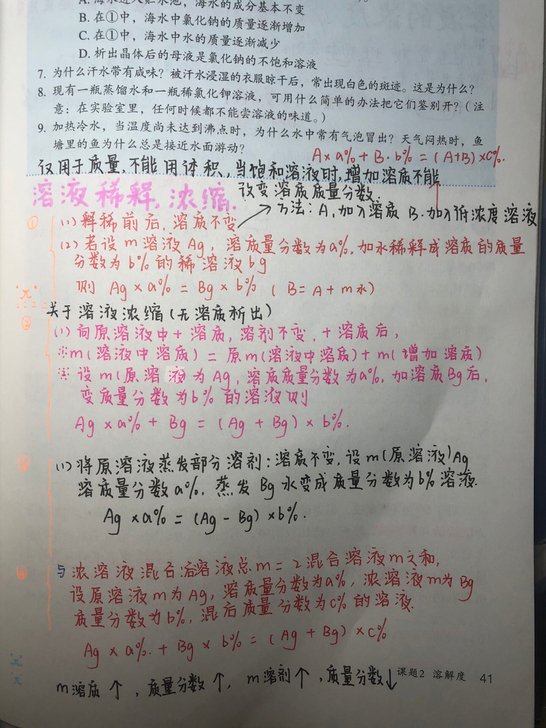 A. 海水进入贮水池，海水的成分基本不变
B. 在①中，海水中氯化钠的质量逐渐增加
C. 在①中，海水中水的质量逐渐减少
D. 析出晶体后的母液是氯化钠的不饱和溶液
7. 为什么汗水带有咸味？被汗水浸湿的衣服晾干后，常出现白色的斑迹。这是为什么？
8. 现有一瓶蒸馏水和一瓶稀氯化钾溶液，可用什么简单的办法把它们鉴别开？（注
意：在实验室里，任何时候都不能尝溶液的味道。）
9. 加热冷水，当温度尚未达到沸点时，为什么水中常有气泡冒出？天气闷热时，鱼
塘里的鱼为什么总是接近水面游动？
A×a%+B·b%=(A+B)×c%.
仅用于质量，不能用体积，当饱和溶液时，增加溶质不能
改变溶质质量分数
溶液稀释，浓缩.
方法：A，加入溶质 B. 加入何浓度溶液
① (1) 释稀前后，溶质不变
(2) 若设m溶液Ag，溶质量分数为a%，加水稀释成溶质的质量
分数为b%的稀溶液bg
则 Ag×a%=Bg×b% (B=A+m水)
关于溶液浓缩(无溶质析出)
② (1) 向原溶液中+溶质，溶剂不变，+溶质后，
※m(溶液中溶质)=原m(溶液中溶质)+m(增加溶质)
※ 设m(原溶液为Ag，溶质质量分数为a%，加溶质Bg后，
变质量分数为b%的溶液则
Ag×a%+Bg=(Ag+Bg)×b%.
③ (1) 将原溶液蒸发部分溶剂：溶质不变，设m(原溶液)Ag
溶质量分数a%，蒸发Bg水变成质量分数为b%溶液.
Ag×a%=(Ag-Bg)×b%.
④ 与浓溶液混合后溶液总m=2混合溶液m之和，
设原溶液m为Ag，溶质量分数为a%，浓溶液m为Bg
质量分数为b%，混后质量分数为c%的溶液.
Ag×a%.+Bg×b%=(Ag+Bg)×c%
m溶质↑，质量分数↑，m溶剂↑，质量分数↓
课题2 溶解度 41